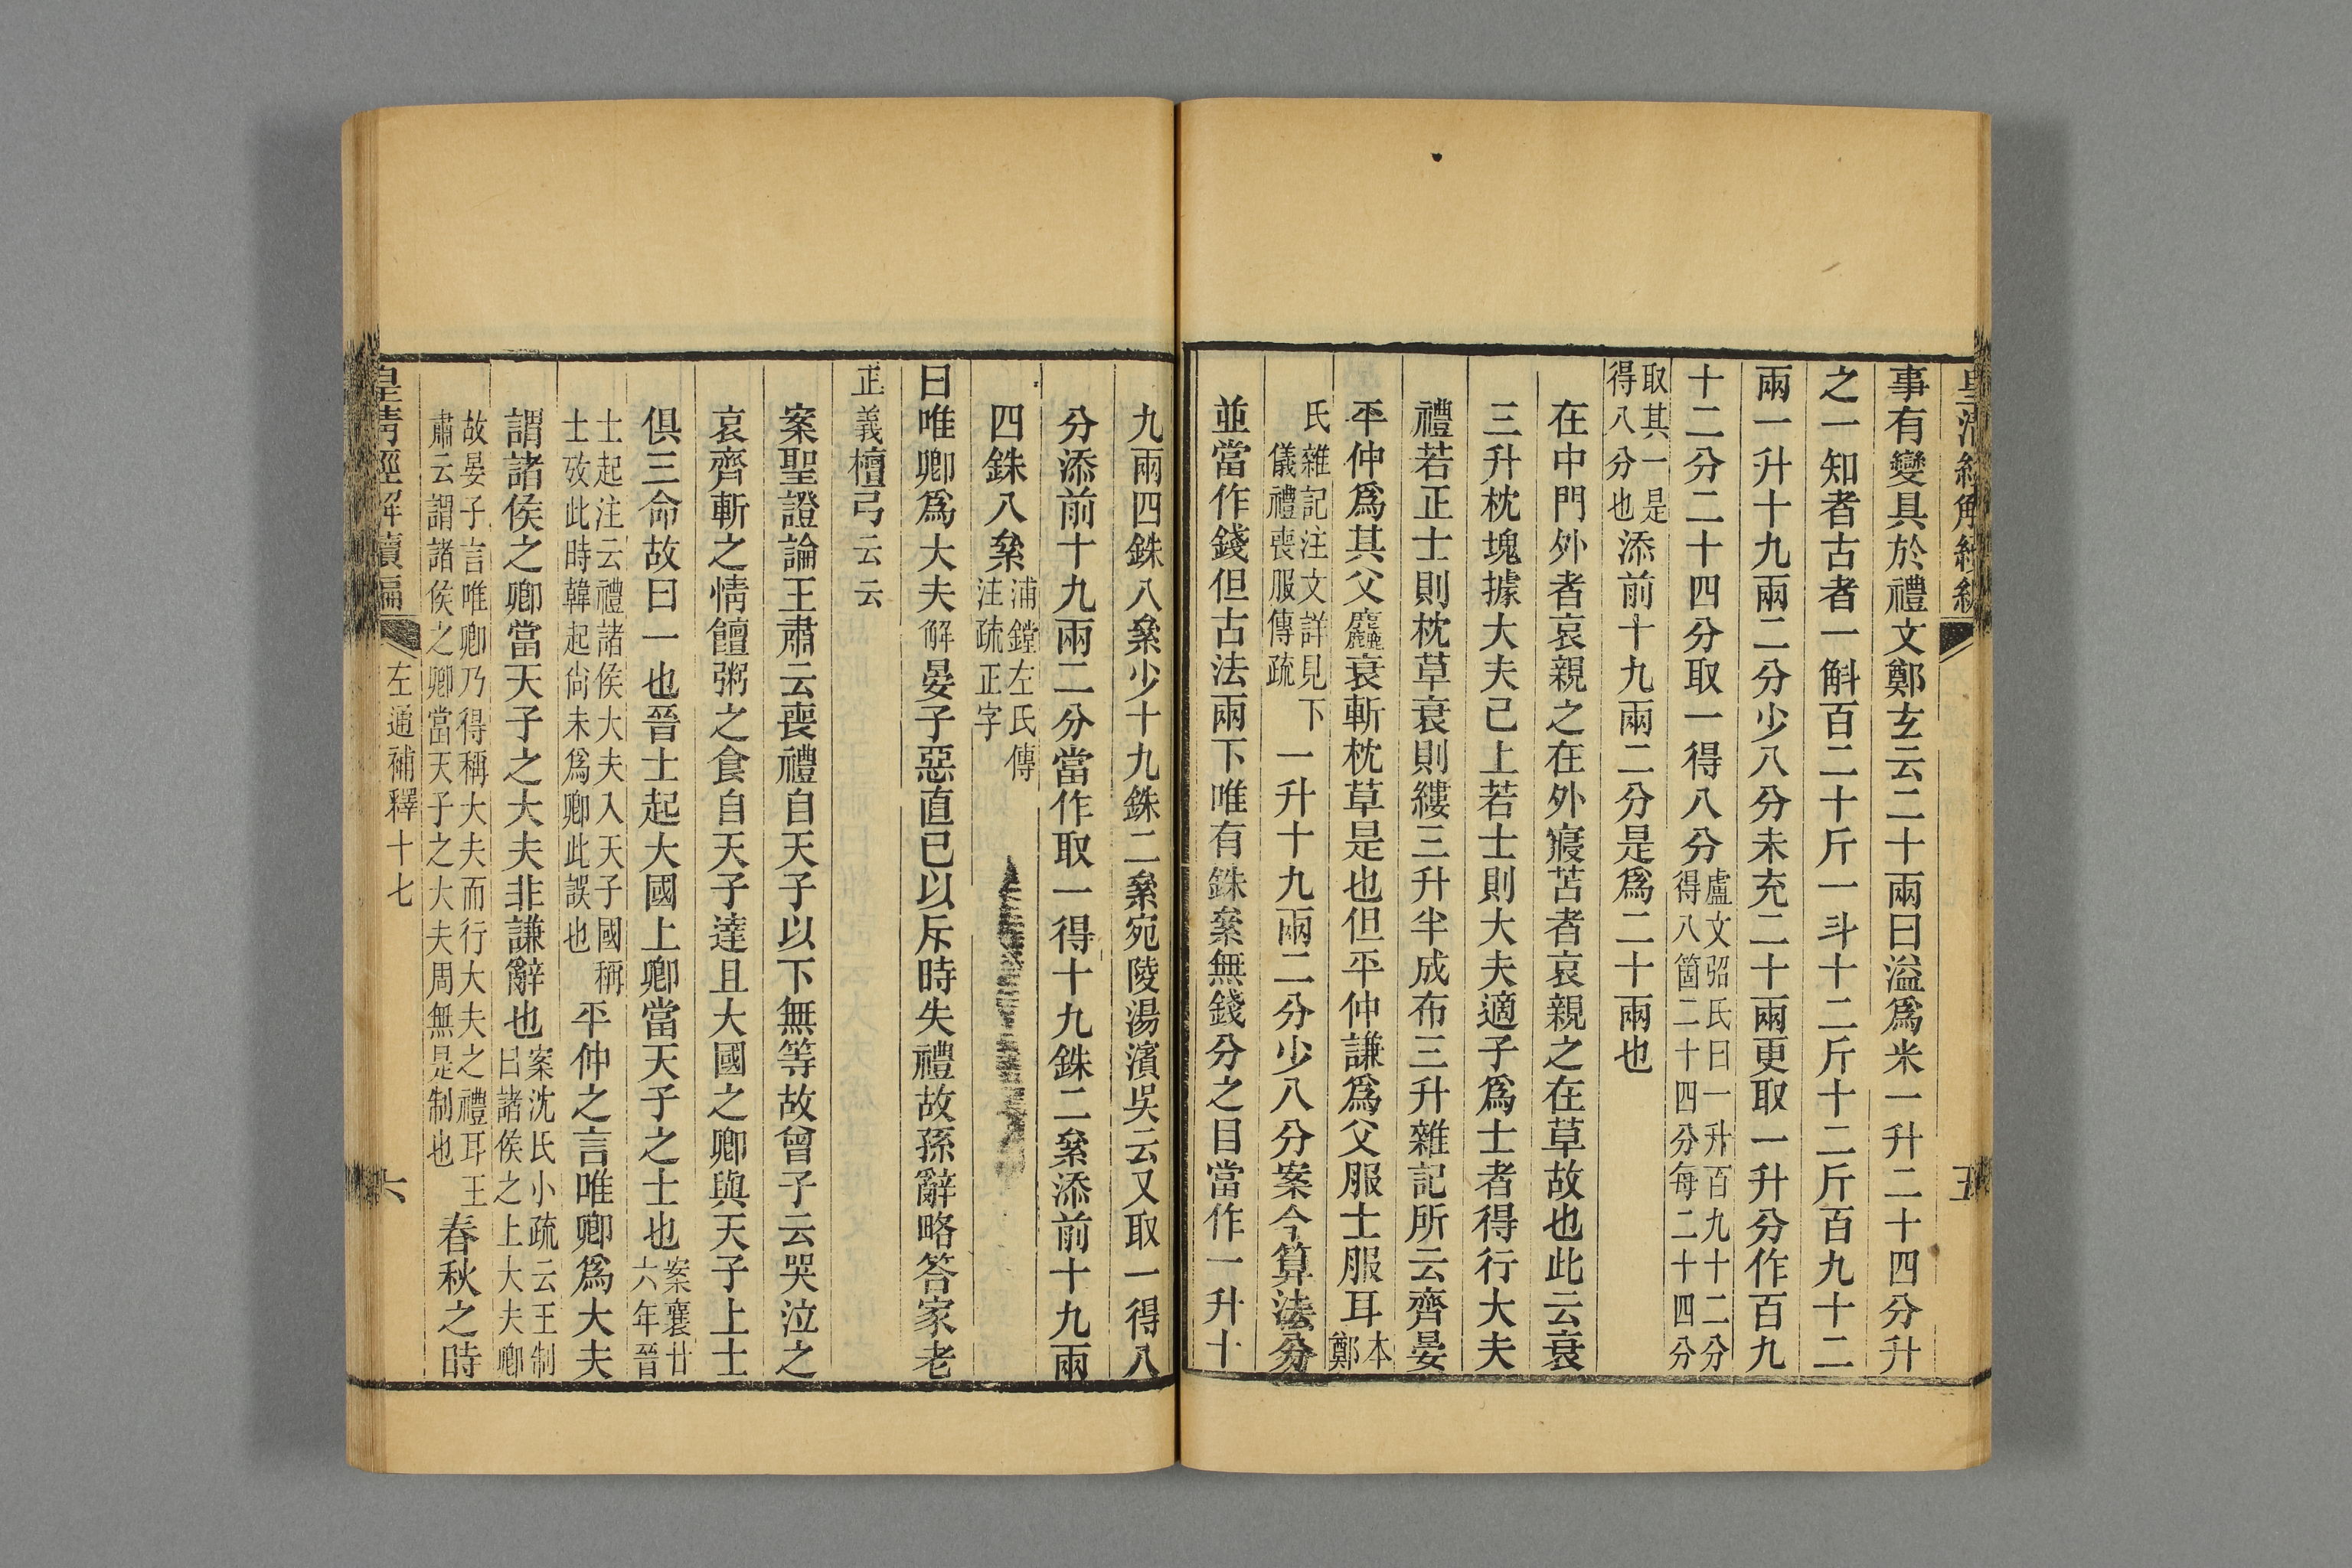 皇清經解續編
五
事有變具於禮文鄭玄云二十兩曰溢爲米一升二十四分升
之一知者古者一斛百二十斤一斗十二斤十二斤百九十二
兩一升十九兩二分少八分未充二十兩更取一升分作百九
十二分二十四分取一得八分盧文弨氏曰一升百九十二分得八箇二十四分每二十四分
取其一是得八分也添前十九兩二分是爲二十兩也
在中門外者哀親之在外寢苫者哀親之在草故也此云衰
三升枕塊據大夫已上若士則大夫適子爲士者得行大夫
禮若正士則枕草衰則縷三升半成布三升雜記所云齊晏
平仲爲其父麤衰斬枕草是也但平仲謙爲父服士服耳本鄭
氏雜記注文詳見下儀禮喪服傳疏一升十九兩二分少八分案今算法分
並當作錢但古法兩下唯有銖絫無錢分之目當作一升十
九兩四銖八絫少十九銖二絫宛陵湯濱吳云又取一得八
分添前十九兩二分當作取一得十九銖二絫添前十九兩
四銖八絫浦鏜左氏傳注疏正字
曰唯卿爲大夫解晏子惡直已以斥時失禮故孫辭略答家老
正義檀弓云云
案聖證論王肅云喪禮自天子以下無等故曾子云哭泣之
哀齊斬之情饘粥之食自天子達且大國之卿與天子上士
俱三命故曰一也晉士起大國上卿當天子之士也案襄廿六年晉
士起注云禮諸侯大夫入天子國稱士攷此時韓起尙未爲卿此誤也平仲之言唯卿爲大夫
謂諸侯之卿當天子之大夫非謙辭也案沈氏小疏云王制曰諸侯之上大夫卿
故晏子言唯卿乃得稱大夫而行大夫之禮耳王肅云謂諸侯之卿當天子之大夫周無是制也春秋之時
皇清經解續編
左通補釋十七
六